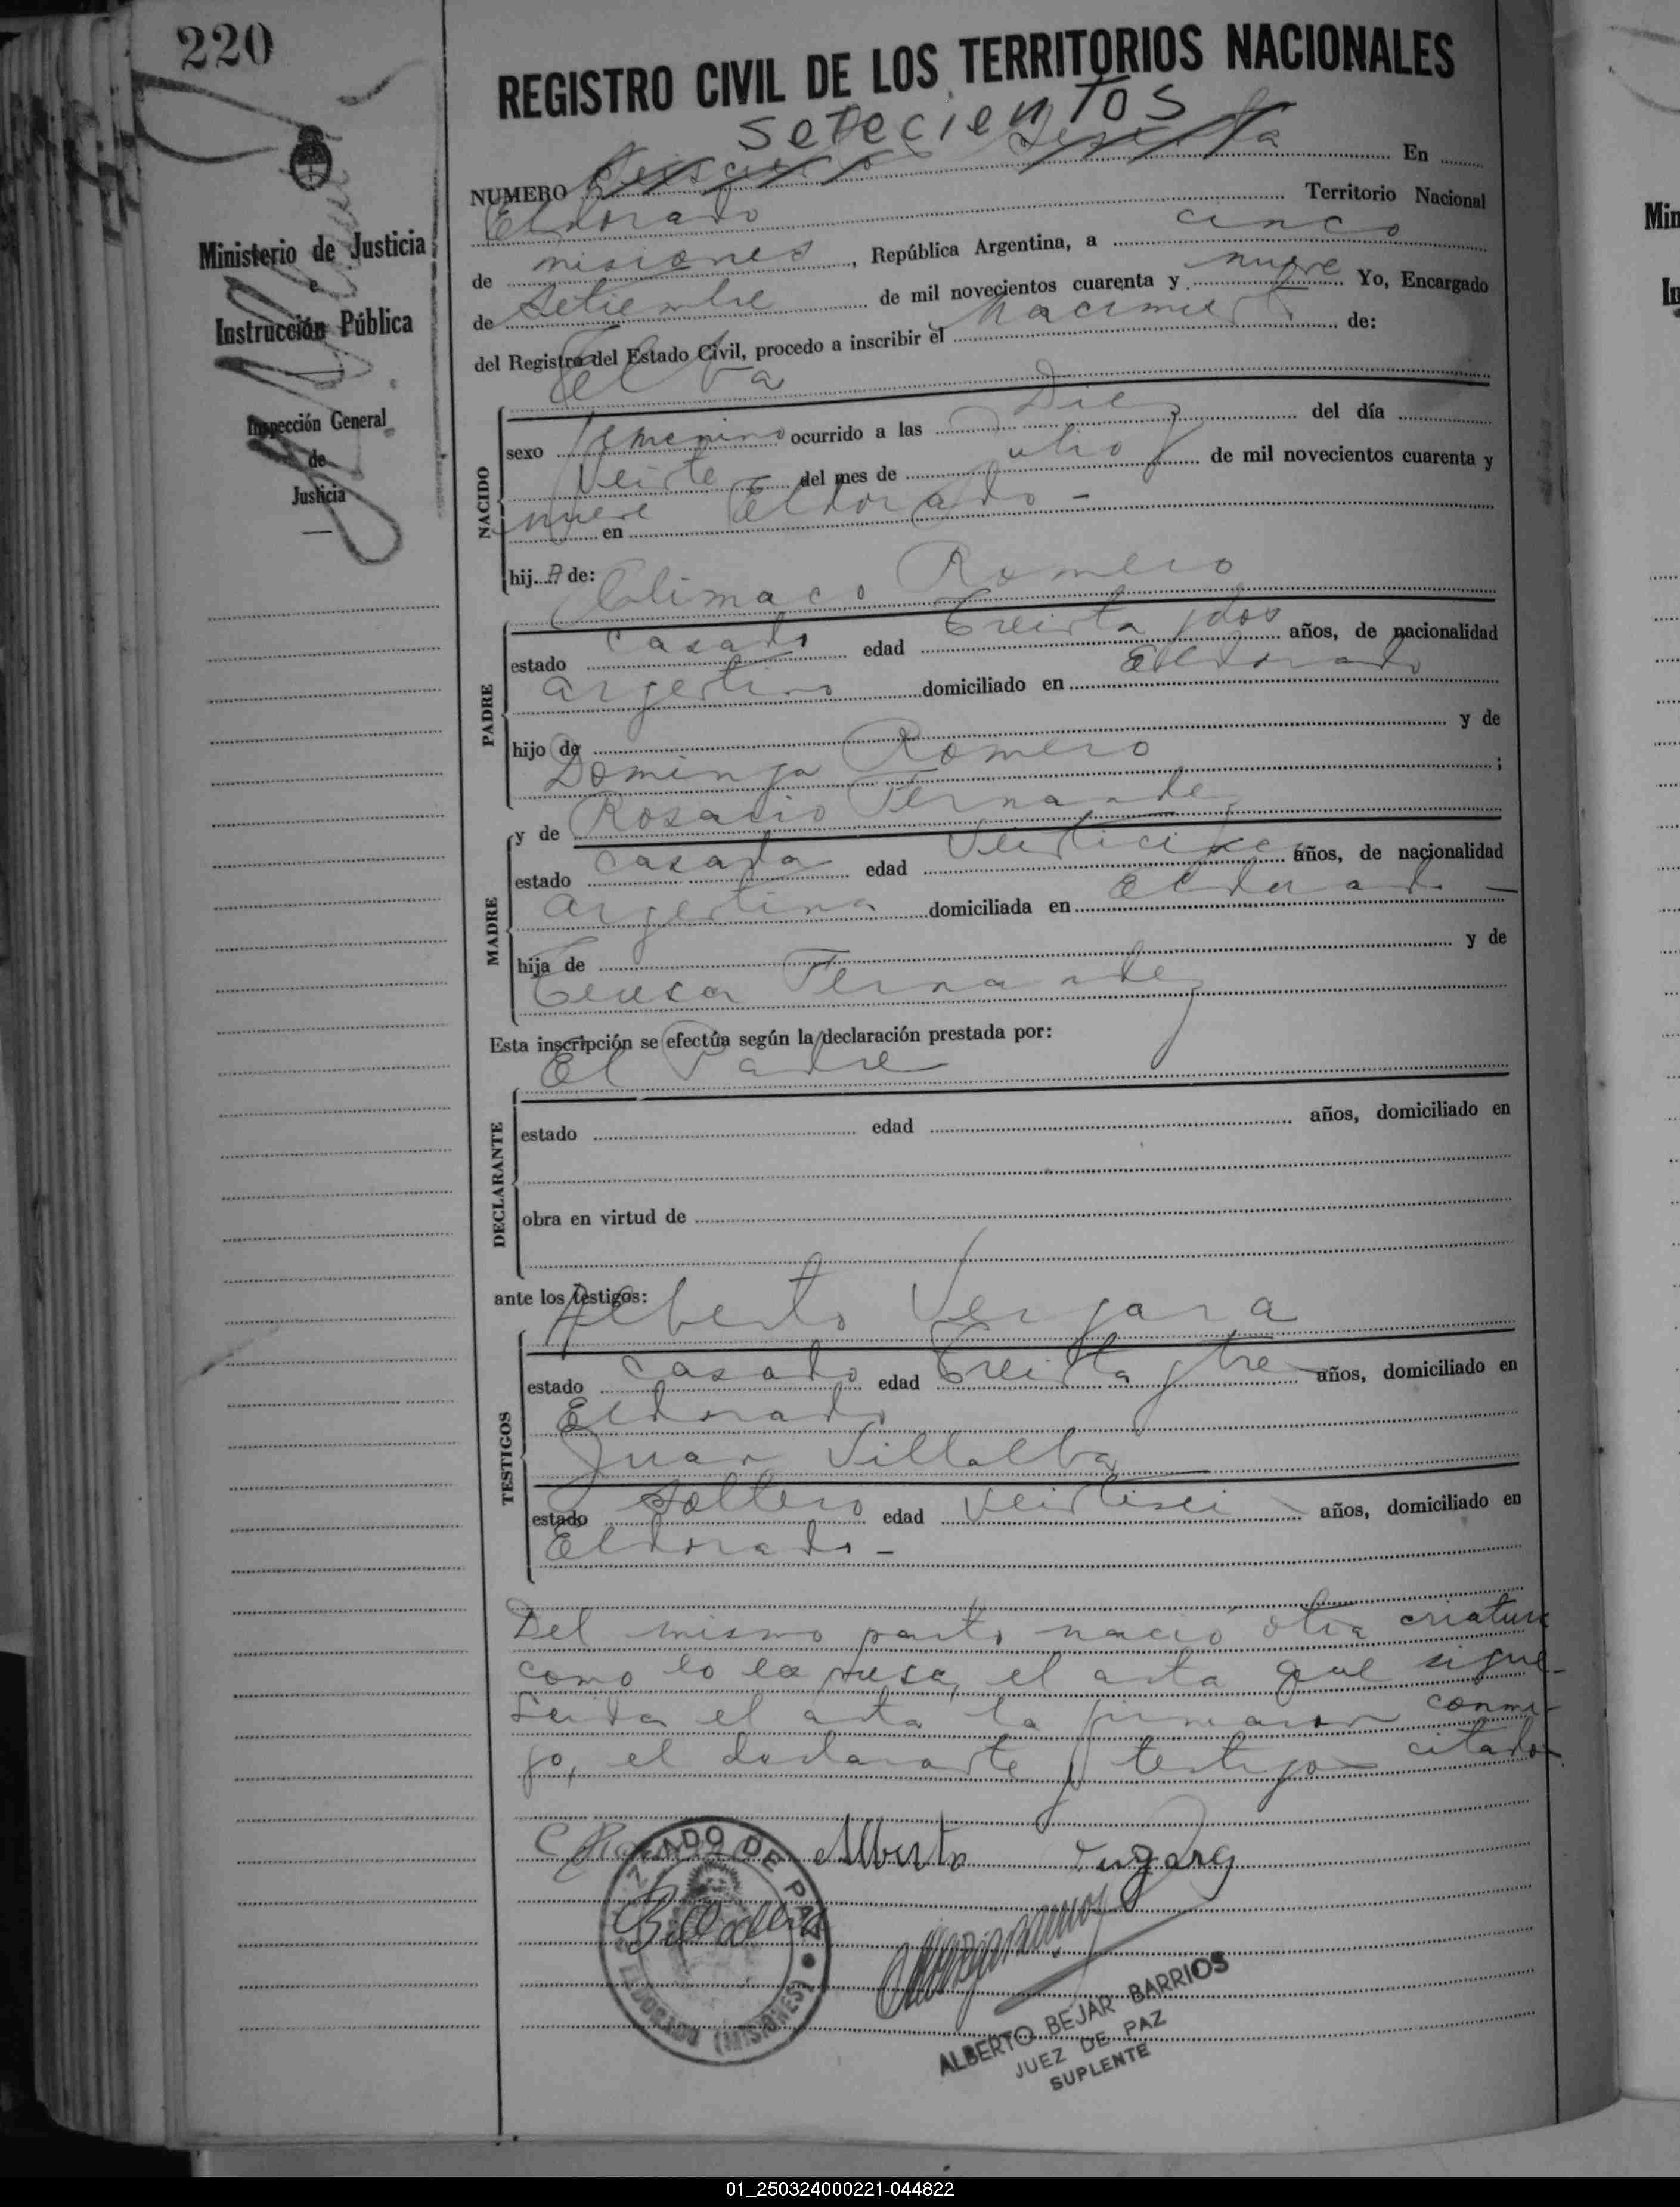 220
REGISTRO CIVIL DE LOS TERRITORIOS NACIONALES
setecientos
NUMERO En
Eldorado Territorio Nacional
de misiones, República Argentina, a cinco
de setiembre de mil novecientos cuarenta y nueve Yo, Encargado
del Registro del Estado Civil, procedo a inscribir el nacimiento de:
Elba
Ministerio de Justicia
e
Instrucción Pública
Inspección General
de
Justicia
NACIDO
sexo femenino ocurrido a las Diez del día
Veinte del mes de Julio de mil novecientos cuarenta y
nueve en Eldorado -
hija de: Climaco Romero
PADRE
estado casado edad Treinta y dos años, de nacionalidad
argentino domiciliado en Eldorado
hijo de y de
Dominga Romero ;
y de Rosario Fernandez
MADRE
estado casada edad años, de nacionalidad
argentina domiciliada en Eldorado -
hija de y de
Teresa Fernandez
Esta inscripción se efectúa según la declaración prestada por:
El Padre
DECLARANTE
estado edad años, domiciliado en
obra en virtud de
ante los testigos: Alberto Vergara
TESTIGOS
estado casado edad Treinta y tres años, domiciliado en
Eldorado
Juan Villalba
estado soltero edad Veintiseis años, domiciliado en
Eldorado -
Del mismo parto nació otra criatura
como lo expresa, el acta que sigue-
Leida el acta la firmaron conmi-
go, el declarante y testigos citados.
Alberto Vergara
JUZGADO DE PAZ
ELDORADO (MISIONES)
ALBERTO BEJAR BARRIOS
JUEZ DE PAZ
SUPLENTE
01_250324000221-044822